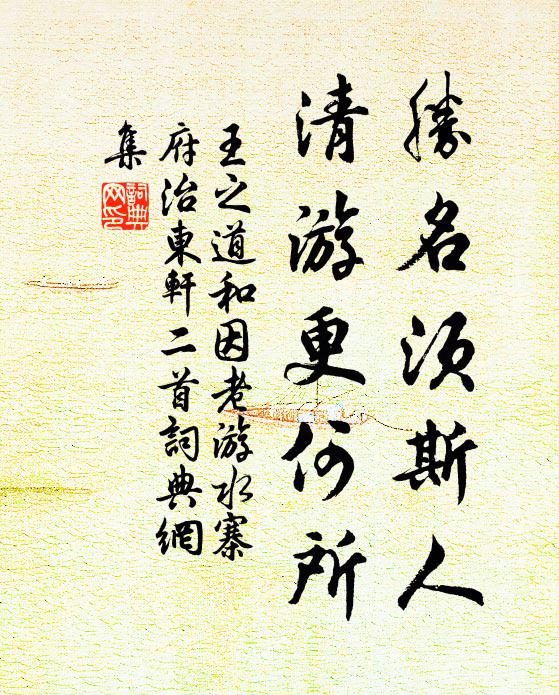 勝名須斯人
清游更何所
王之道和因老游水寨
府治東軒二首詞典網
集
詞典
网印